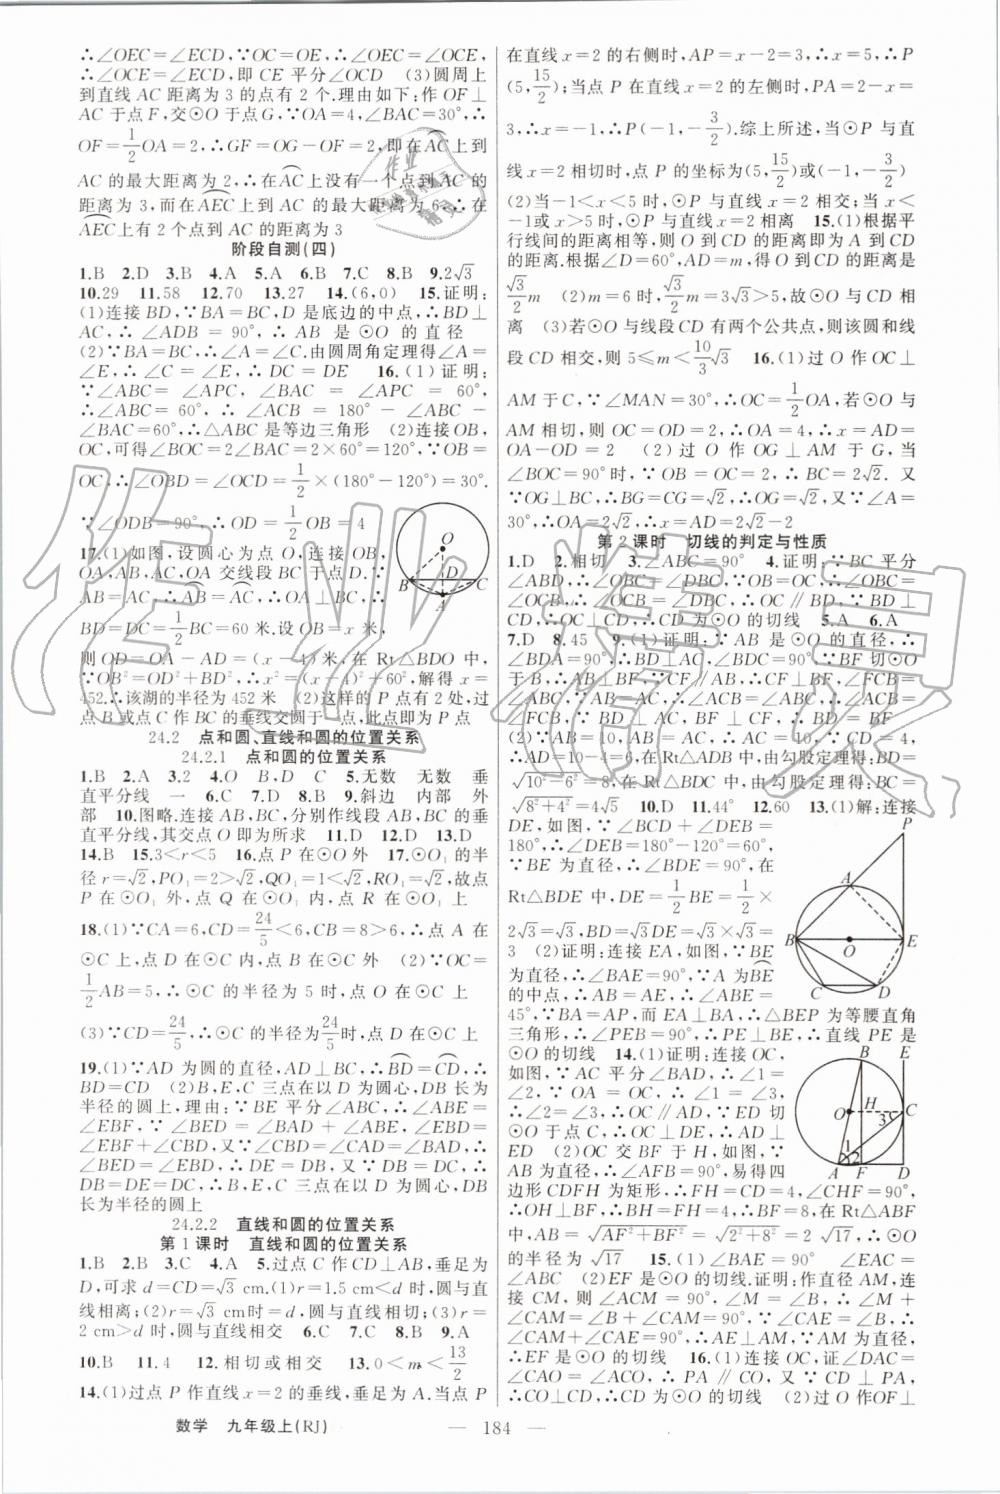 ∴∠OEC=∠ECD,∵OC=OE,∴∠OEC=∠OCE,
∴∠OCE=∠ECD,即 CE 平分∠OCD (3)圆周上
到直线 AC 距离为 3 的点有 2 个.理由如下:作 OF⊥
AC 于点 F,交⊙O 于点 G,∵OA=4,∠BAC=30°,∴
OF=1/2OA=2,∴GF=OG-OF=2,即在AC上到
AC 的最大距离为 2,∴在AC上没有一个点到 AC 的
距离为 3,而在AEC上到 AC 的最大距离为 6,∴在
AEC上有 2 个点到 AC 的距离为 3
阶段自测(四)
1.B 2.D 3.B 4.A 5.A 6.B 7.C 8.B 9.2√3
10.29 11.58 12.70 13.27 14.(6,0) 15.证明:
(1)连接 BD,∵BA=BC,D 是底边的中点,∴BD⊥
AC,∴∠ADB=90°,∴AB 是⊙O 的直径
(2)∵BA=BC,∴∠A=∠C.由圆周角定理得∠A=
∠E,∴∠C=∠E,∴DC=DE 16.(1)证明:
∵∠ABC=∠APC,∠BAC=∠APC=60°,
∴∠ABC=60°,∴∠ACB=180°-∠ABC-
∠BAC=60°,∴△ABC 是等边三角形 (2)连接OB,
OC,可得∠BOC=2∠BAC=2×60°=120°,∵OB=
OC,∴∠OBD=∠OCD=1/2×(180°-120°)=30°.
∵∠ODB=90°,∴OD=1/2OB=4
17.(1)如图,设圆心为点 O,连接 OB,
OA,OA 交线段 BC 于点 D,∵
AB=AC,∴AB=AC,∴OA⊥BC,∴
BD=DC=1/2BC=60 米.设 OB=x 米,
则 OD=OA-AD=(x-4)米,在 Rt△BDO 中,
∵OB²=OD²+BD²,∴x²=(x-4)²+60²,解得 x=
452.∴该湖的半径为 452 米 (2)这样的 P 点有 2 处,过
点 B 或点 C 作 BC 的垂线交圆于一点,此点即为 P 点
24.2 点和圆、直线和圆的位置关系
24.2.1 点和圆的位置关系
1.B 2.A 3.2 4.O B,D C 5.无数 无数 垂
直平分线 一 6.C 7.D 8.B 9.斜边 内部 外
部 10.图略.连接 AB,BC,分别作线段 AB,BC 的垂
直平分线,其交点 O 即为所求 11.D 12.D 13.D
14.B 15.3<r<5 16.点 P 在⊙O 外 17.⊙O₁的半
径 r=√2,PO₁=2>√2,QO₁=1<√2,RO₁=√2,故点
P 在⊙O₁外,点 Q 在⊙O₁内,点 R 在⊙O₁上
18.(1)∵CA=6,CD=24/5<6,CB=8>6,∴点 A 在
⊙C 上,点 D 在⊙C 内,点 B 在⊙C 外 (2)∵OC=
1/2AB=5,∴⊙C 的半径为 5 时,点 O 在⊙C 上
(3)∵CD=24/5,∴⊙C 的半径为24/5时,点 D 在⊙C 上
19.(1)∵AD 为圆的直径,AD⊥BC,∴BD=CD,∴
BD=CD (2)B,E,C 三点在以 D 为圆心,DB 长为
半径的圆上,理由:∵BE 平分∠ABC,∴∠ABE=
∠EBF,∵∠BED=∠BAD+∠ABE,∠EBD=
∠EBF+∠CBD,又∵∠CBD=∠CAD=∠BAD,∴
∠BED=∠EBD,∴DB=DE,又∵BD=CD,∴
DB=DE=DC,∴B,E,C 三点在以 D 为圆心,DB
长为半径的圆上
24.2.2 直线和圆的位置关系
第 1 课时 直线和圆的位置关系
1.B 2.B 3.C 4.A 5.过点 C 作 CD⊥AB,垂足为
D,可求 d=CD=√3 cm.(1)r=1.5cm<d 时,圆与直
线相离;(2)r=√3 cm时 d=r,圆与直线相切;(3)r=
2 cm>d 时,圆与直线相交 6.C 7.C 8.B 9.A
10.B 11.4 12.相切或相交 13.0<m<13/2
14.(1)过点 P 作直线 x=2 的垂线,垂足为 A.当点 P
在直线 x=2 的右侧时,AP=x-2=3,∴x=5,∴P
(5,15/2);当点 P 在直线 x=2 的左侧时,PA=2-x=
3,∴x=-1,∴P(-1,-3/2).综上所述,当⊙P 与直
线 x=2 相切时,点 P 的坐标为(5,15/2)或(-1,-3/2)
(2)当-1<x<5 时,⊙P 与直线 x=2 相交;当 x<
-1或 x>5 时,⊙P 与直线 x=2 相离 15.(1)根据平
行线间的距离相等,则 O 到 CD 的距离即为 A 到 CD
的距离.根据∠D=60°,AD=m,得 O 到 CD 的距离是
√3/2m (2)m=6 时,√3/2m=3√3>5,故⊙O 与 CD 相
离 (3)若⊙O 与线段 CD 有两个公共点,则该圆和线
段 CD 相交,则 5≤m<10/3√3 16.(1)过 O 作 OC⊥
AM 于 C,∵∠MAN=30°,∴OC=1/2OA,若⊙O 与
AM 相切,则 OC=OD=2,∴OA=4,∴x=AD=
OA-OD=2 (2)过 O 作 OG⊥AM 于 G,当
∠BOC=90°时,∵OB=OC=2,∴BC=2√2. 又
∵OG⊥BC,∴BG=CG=√2,∴OG=√2,又∵∠A=
30°,∴OA=2√2,∴x=AD=2√2-2
第 2 课时 切线的判定与性质
1.D 2.相切 3.∠ABC=90° 4.证明:∵BC 平分
∠ABD,∴∠OBC=∠DBC,∵OB=OC,∴∠OBC=
∠OCB,∴∠DBC=∠OCB,∴OC∥BD,∵BD⊥
CD,∴OC⊥CD,∴CD 为⊙O 的切线 5.A 6.A
7.D 8.45 9.(1)证明:∵AB 是⊙O 的直径,∴
∠BDA=90°,∴BD⊥AC,∠BDC=90°,∵BF 切⊙O
于 B,∴AB⊥BF,∵CF∥AB,∴CF⊥BF,∠FCB=
∠ABC,∵AB=AC,∴∠ACB=∠ABC,∴∠ACB=
∠FCB,∵BD⊥AC,BF⊥CF,∴BD=BF
(2)∵AB=10,AB=AC,∴AC=10,∵CD=4,
∴AD=10-4=6,在 Rt△ADB 中,由勾股定理得:BD=
√10²-6²=8,在 Rt△BDC 中,由勾股定理得:BC=
√8²+4²=4√5 10.D 11.44° 12.60 13.(1)解:连接
DE,如图,∵∠BCD+∠DEB=
180°,∴∠DEB=180°-120°=60°,
∵BE 为直径,∴∠BDE=90°,在
Rt△BDE 中,DE=1/2BE=1/2×
2√3=√3,BD=√3DE=√3×√3=
3 (2)证明:连接 EA,如图,∵BE
为直径,∴∠BAE=90°,∵A为BE
的中点,∴AB=AE,∴∠ABE=
45°,∵BA=AP,而 EA⊥BA,∴△BEP 为等腰直角
三角形,∴∠PEB=90°,∴PE⊥BE,∴直线 PE 是
⊙O 的切线 14.(1)证明:连接 OC,
如图,∵AC 平分∠BAD,∴∠1=
∠2,∵OA=OC,∴∠1=∠3,
∴∠2=∠3,∴OC∥AD,∵ED 切
⊙O 于点 C,∴OC⊥DE,∴AD⊥
ED (2)OC 交 BF 于 H,如图,∵
AB 为直径,∴∠AFB=90°,易得四
边形 CDFH 为矩形,∴FH=CD=4,∠CHF=90°,
∴OH⊥BF,∴BH=FH=4,∴BF=8,在Rt△ABF
中,AB=√AF²+BF²=√2²+8²=2√17,∴⊙O
的半径为√17 15.(1)∠BAE=90° ∠EAC=
∠ABC (2)EF 是⊙O 的切线.证明:作直径 AM,连
接 CM,则∠ACM=90°,∠M=∠B,∴∠M+
∠CAM=∠B+∠CAM=90°,∵∠CAE=∠B,∴
∠CAM+∠CAE=90°,∴AE⊥AM,∵AM为直径,
∴EF是⊙O 的切线 16.(1)连接 OC,证∠DAC=
∠CAO=∠ACO,∴PA∥CO,又∵CD⊥PA,
∴CO⊥CD,∴CD 为⊙O 的切线 (2)过 O 作OF⊥
O
B
D
C
A
P
A
B
O
E
C
D
B
E
O
H
C
3
1
2
A
F
D
数学 九年级上(RJ)
— 184 —
作业精灵